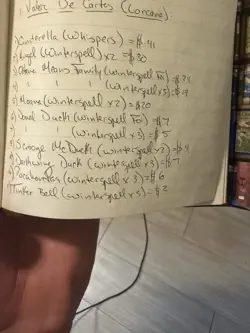 1. Valor De Cartas (Lorcana)
Cinderella (Whispers) = $41
Angel (Winterspell) x2 = $30
Ohana Means Family (Winterspell Foil) = $
" " (Winterspell x3) = $
Moana (Winterspell x2) = $20
Donal Duck (Winterspell Foil) = $7
" " (Winterspell x3) = $5
Scrooge McDuck (Winterspell x2) = $
Darkwing Duck (Winterspell x3) = $
Pocahontas (Winterspell x3) = $6
Tinker Bell (Winterspell x3) = $2